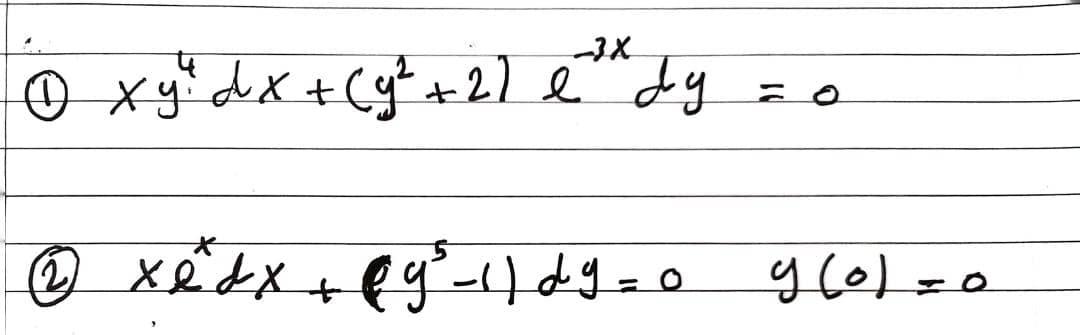 ① xy⁴dx + (y² + 2) e⁻³ˣ dy = 0
② xeˣdx + (y⁵ - 1) dy = 0 y(0) = 0